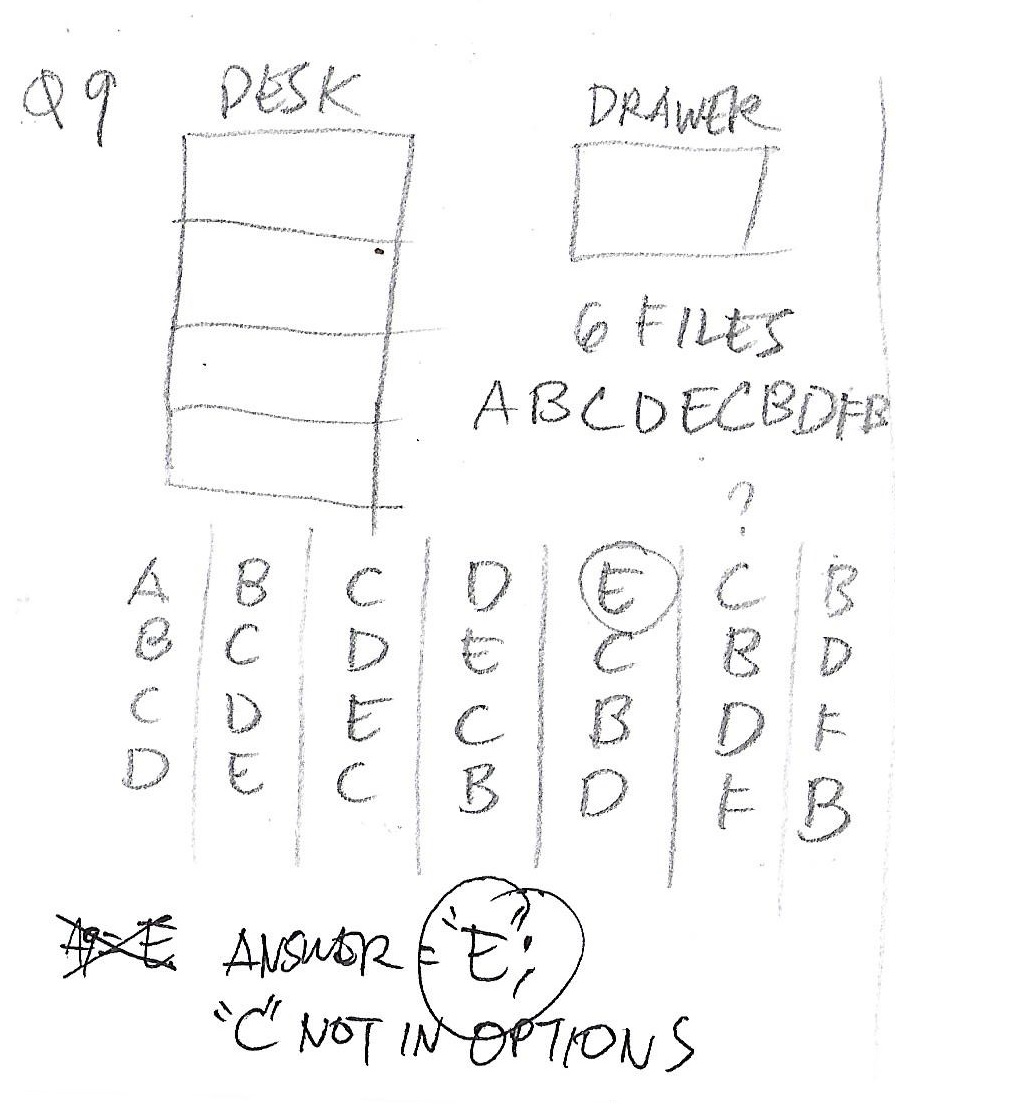 Q9 DESK DRAWER
6 FILES
A B C D E C B D F B
?
A B C D E C B
B C D E C B D
C D E C B D F
D E C B D F B
A9=E ANSWER = "E";
"C" NOT IN OPTIONS